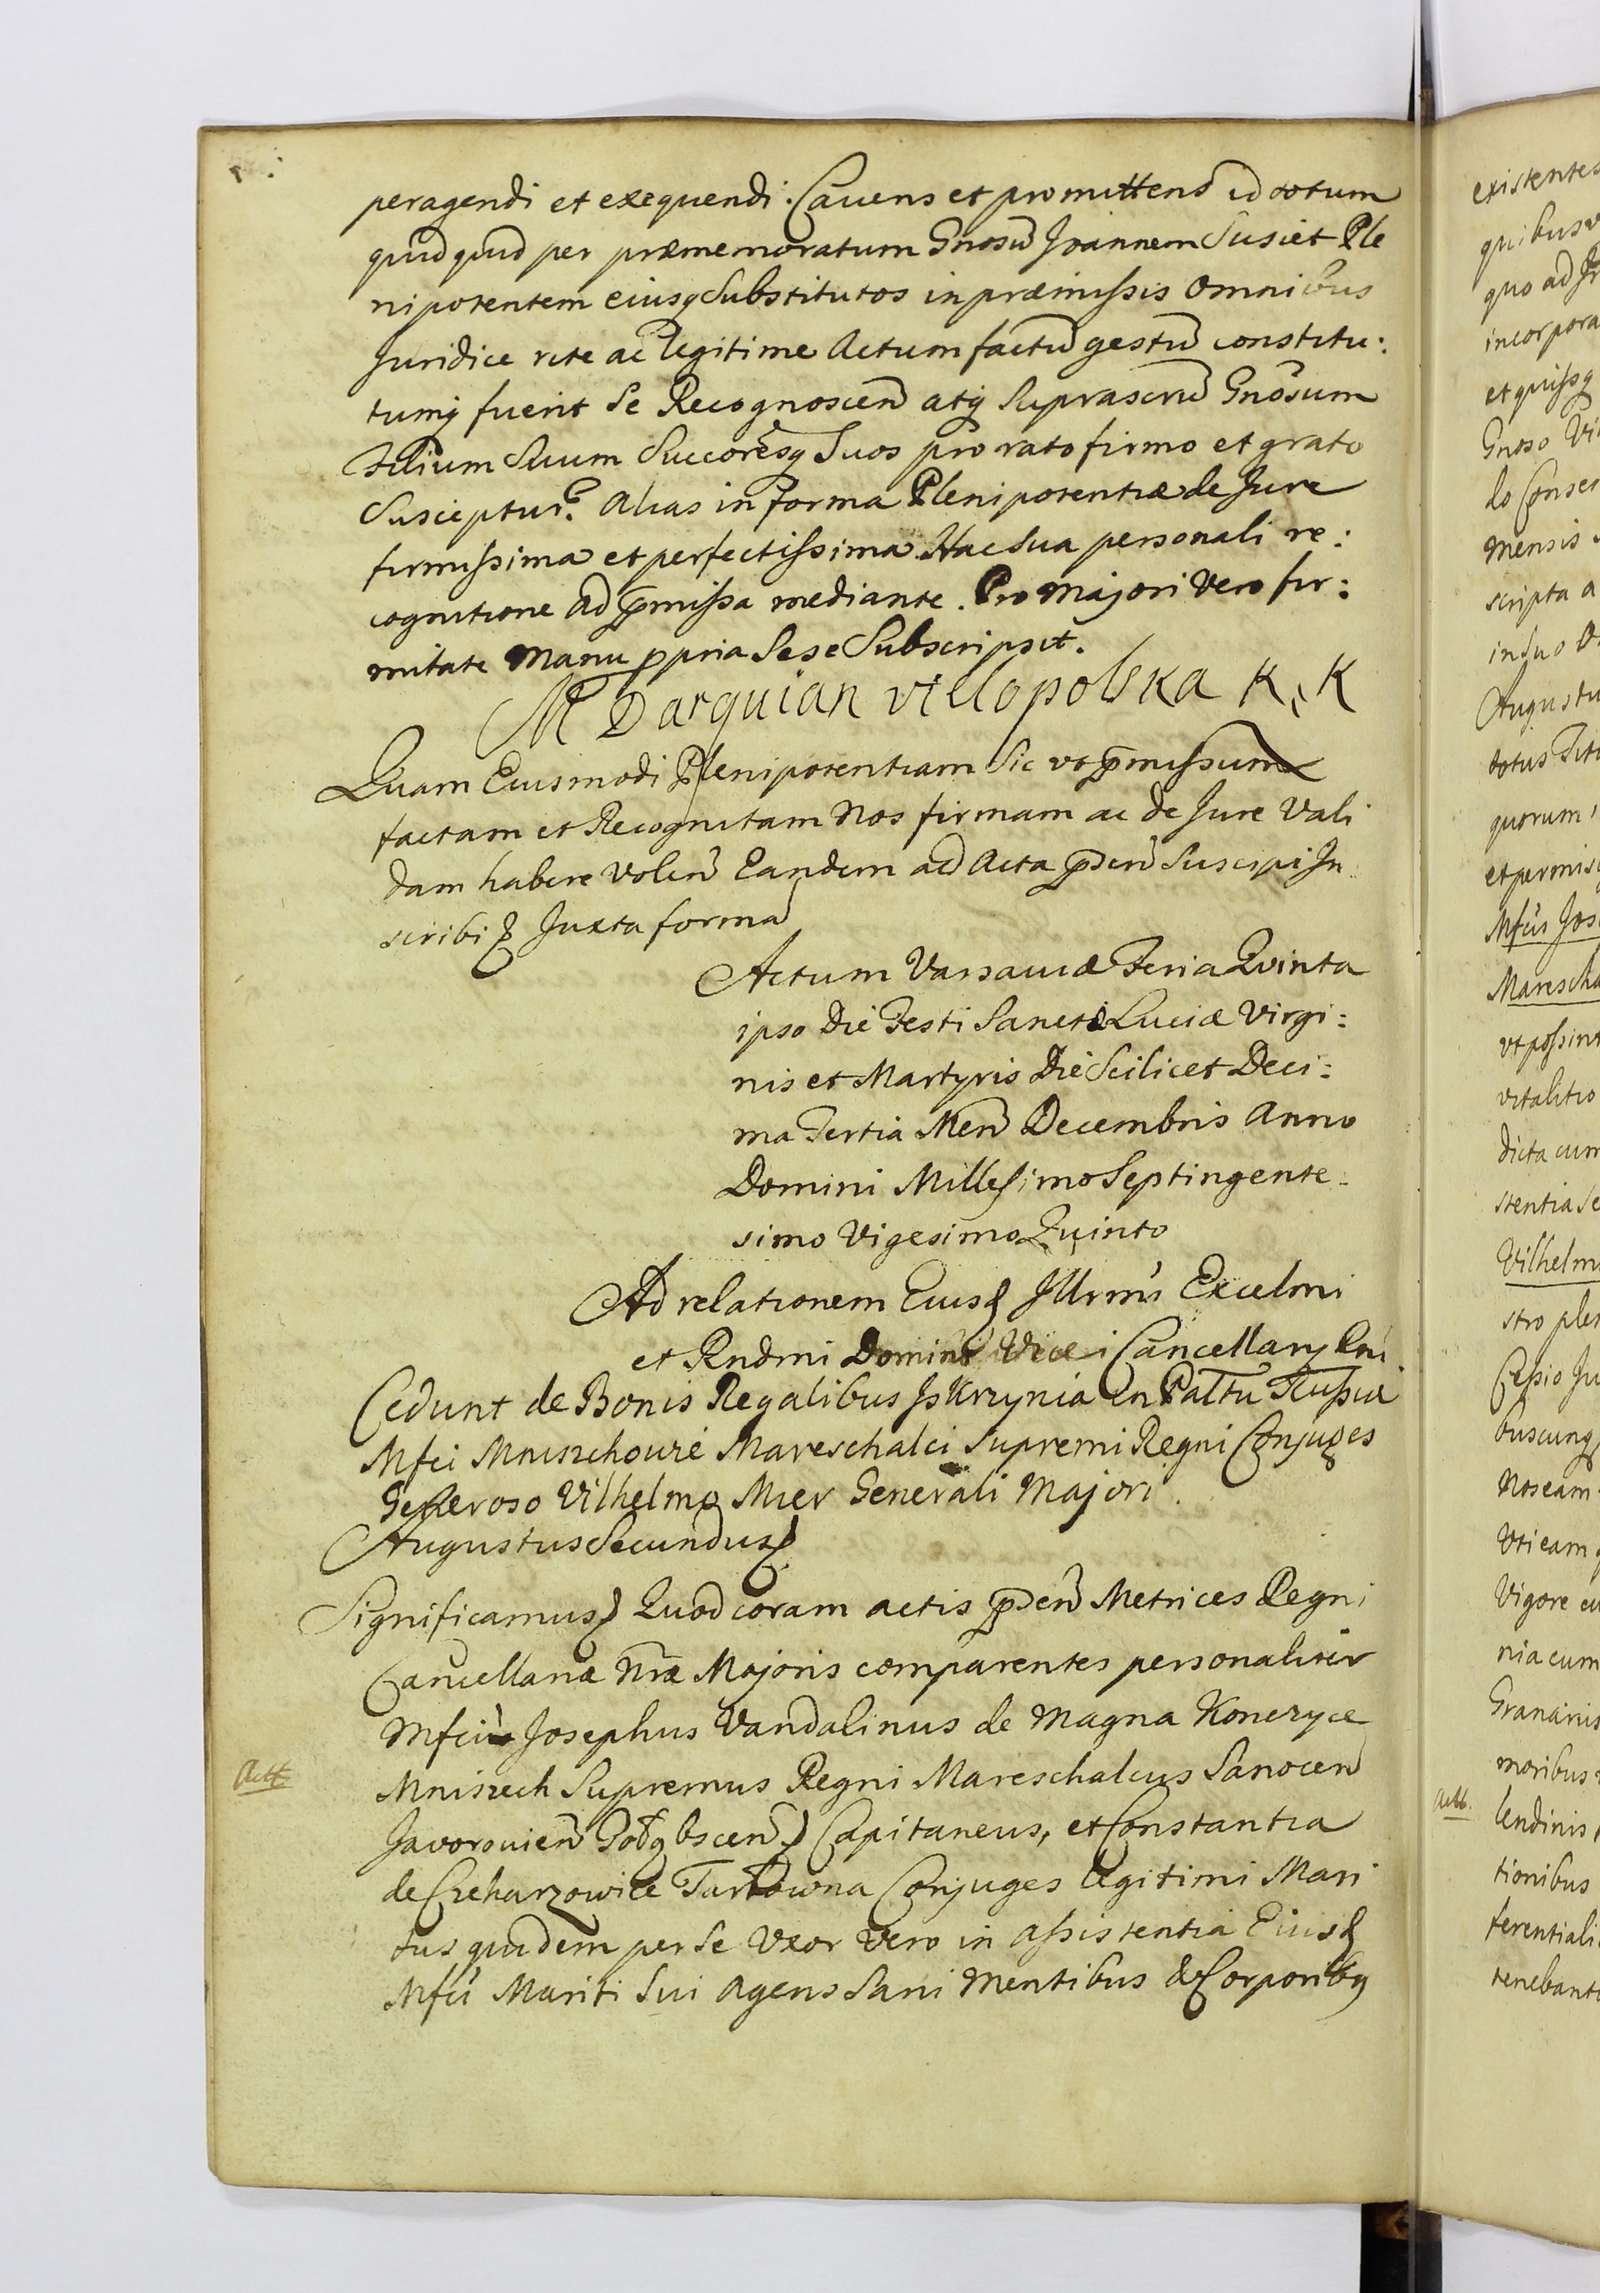 peragendi et exequendi. Cavens et promittens id totum
quidquid per præmemoratum Gnosũ Joannem Susiet Ple
nipotentem eiusq Substitutos in præmissis omnibus
Juridice rite ac legitime Actum factũ gestũ constitu:
tumq fuerit se Recognoscen̄ atq Suprascrip̄ Gnosum
Filium Suum Succoresq Suos pro rato firmo et grato
Susceptur. Alias in forma Plenipotentiæ de Jure
firmissima et perfectissima Hac sua personali re:
cognitione ad p̄missa mediante. Pro Majori Vero fir:
mitate Manu ppria Sese Subscripsit.
M Darquian villopolska K. K
Quam Eiusmodi Plenipotentiam Sic vt p̄missum
factam et Recognitam Nos firmam ac de Jure Vali
dam habere Volen̄ Eandem ad Acta p̄sen̄ Suscipi In
scribi & Juxta forma
Actum Varsaviæ Feria Quinta
ipso Die Festi Sanctæ Luciæ Virgi:
nis et Martyris Die Scilicet Deci:
ma Tertia Men̄ Decembris Anno
Domini Millesimo Septingente
simo Vigesimo Quinto
Ad relationem Eiusd Illrmi Excelmi
et Rndmi Domini Vice Cancellary Rni
Cedunt de Bonis Regalibus Iskrzynia in Pallũ Russiæ
Mfci Mniszchowie Mareschalci Supremi Regni Conjuges
Generoso Vilhelmo Mier Generali Majori.
Augustus Secundus &
Significamus & Quod coram actis p̄sen̄ Metrices Regni
Cancellariæ Nræ Majoris comparentes personaliter
Mfcus Josephus Vandalinus de Magna Konczyce
Mniszech Supremus Regni Mareschalcus Sanocen̄
Javorovien̄ & Capitaneus, et Constantia
de Czeharzowice Tarłowna Conjuges legitimi Mari
tus quidem per Se Uxor Vero in assistentia Eiusd
Mfci Mariti Sui Agens Sani Mentibus & Corporibq
existentes
quo ad
incorpora
Gnoso
mensis
scripta a
in suo
Augustu
totus
quorum
Mfcus Jos
Marescha
vt possint
vitalitio
dicta cum
stentia Se
Vilhelm
stro ple
Cessio Ju
buscunq
Nos eam
Vti eam
Vigore
nia cum
Granariis
moribus
lendinis
tionibus
ferentiali
tenebant